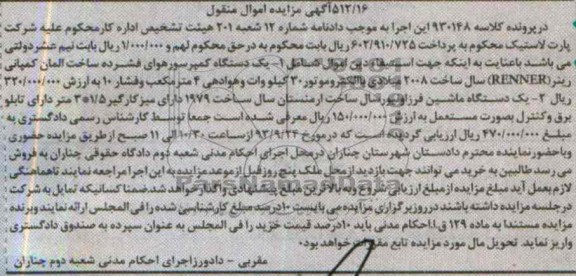 ۵۱۲/۱۶ آگهی مزایده اموال منقول
در پرونده کلاسه ۹۳۰۱۴۸ این اجرا به موجب دادنامه شماره ۱۲ شعبه ۲۰۱ هیئت تشخیص اداره کار محکوم علیه شرکت
پارت لاستیک محکوم به پرداخت ۶۰۲/۹۱۰/۷۲۵ ریال بابت محکوم به در حق محکوم لهم و ۱/۰۰۰/۰۰۰ ریال بابت نیم عشر دولتی
می باشد با عنایت به اینکه جهت استیفای دین اموال شامل ۱- یک دستگاه کمپرسور هوای فشرده ساخت آلمان کمپانی
رینر (RENNER) سال ساخت ۲۰۰۸ میلادی با الکتروموتور ۳۰ کیلو وات و هوادهی ۴ متر مکعب و فشار ۱۰ به ارزش ۳۲۰/۰۰۰/۰۰۰
ریال ۲- یک دستگاه ماشین فرز اونیورسال ساخت ارمنستان سال ساخت ۱۹۷۹ دارای میز کارگیر ۳۵۱/۵ متر دارای تابلو
برق و کنترل بصورت مستعمل به ارزش ۱۵۰/۰۰۰/۰۰۰ ریال معرفی شده است جمعا توسط کارشناس رسمی دادگستری به
مبلغ ۴۷۰/۰۰۰/۰۰۰ ریال ارزیابی گردیده است که در مورخ ۹۳/۹/۲۴ از ساعت ۱۰/۳۰ الی ۱۱ صبح از طریق مزایده حضوری
و با حضور نماینده محترم دادستان شهرستان چناران در محل اجرای احکام مدنی شعبه دوم دادگاه حقوقی چناران به فروش
می رسد طالبین به خرید می توانند جهت بازدید از محل ملک پنج روز قبل از موعد مزایده به این اجرا مراجعه نمایند تا هماهنگی
لازم بعمل آید مبلغ مزایده از مبلغ ارزیابی شروع و به بالاترین مبلغ پیشنهادی واگذار خواهد شد ضمنا کسانیکه تمایل به شرکت
در جلسه مزایده داشته باشند در روز برگزاری مزایده می بایست ۱۰ درصد مبلغ کارشناسی شده را فی المجلس ارائه نمایند و برنده
مزایده مستندا به ماده ۱۲۹ ق.ا.احکام مدنی باید ۱۰ درصد قیمت خرید را فی المجلس به عنوان سپرده به صندوق دادگستری
واریز نماید. تحویل مال مورد مزایده تابع مقررات خواهد بود.
مقربی - دادورز اجرای احکام مدنی شعبه دوم چناران